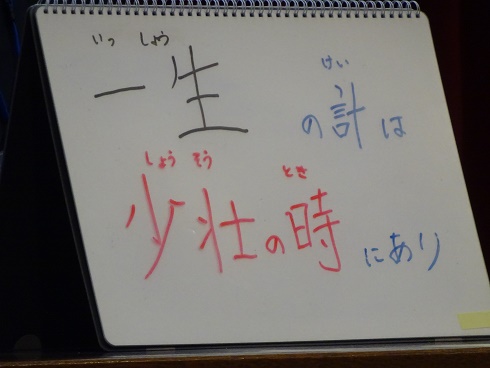 いっ しょう
一生
けい
の計は
しょう そう とき
少壮の時にあり